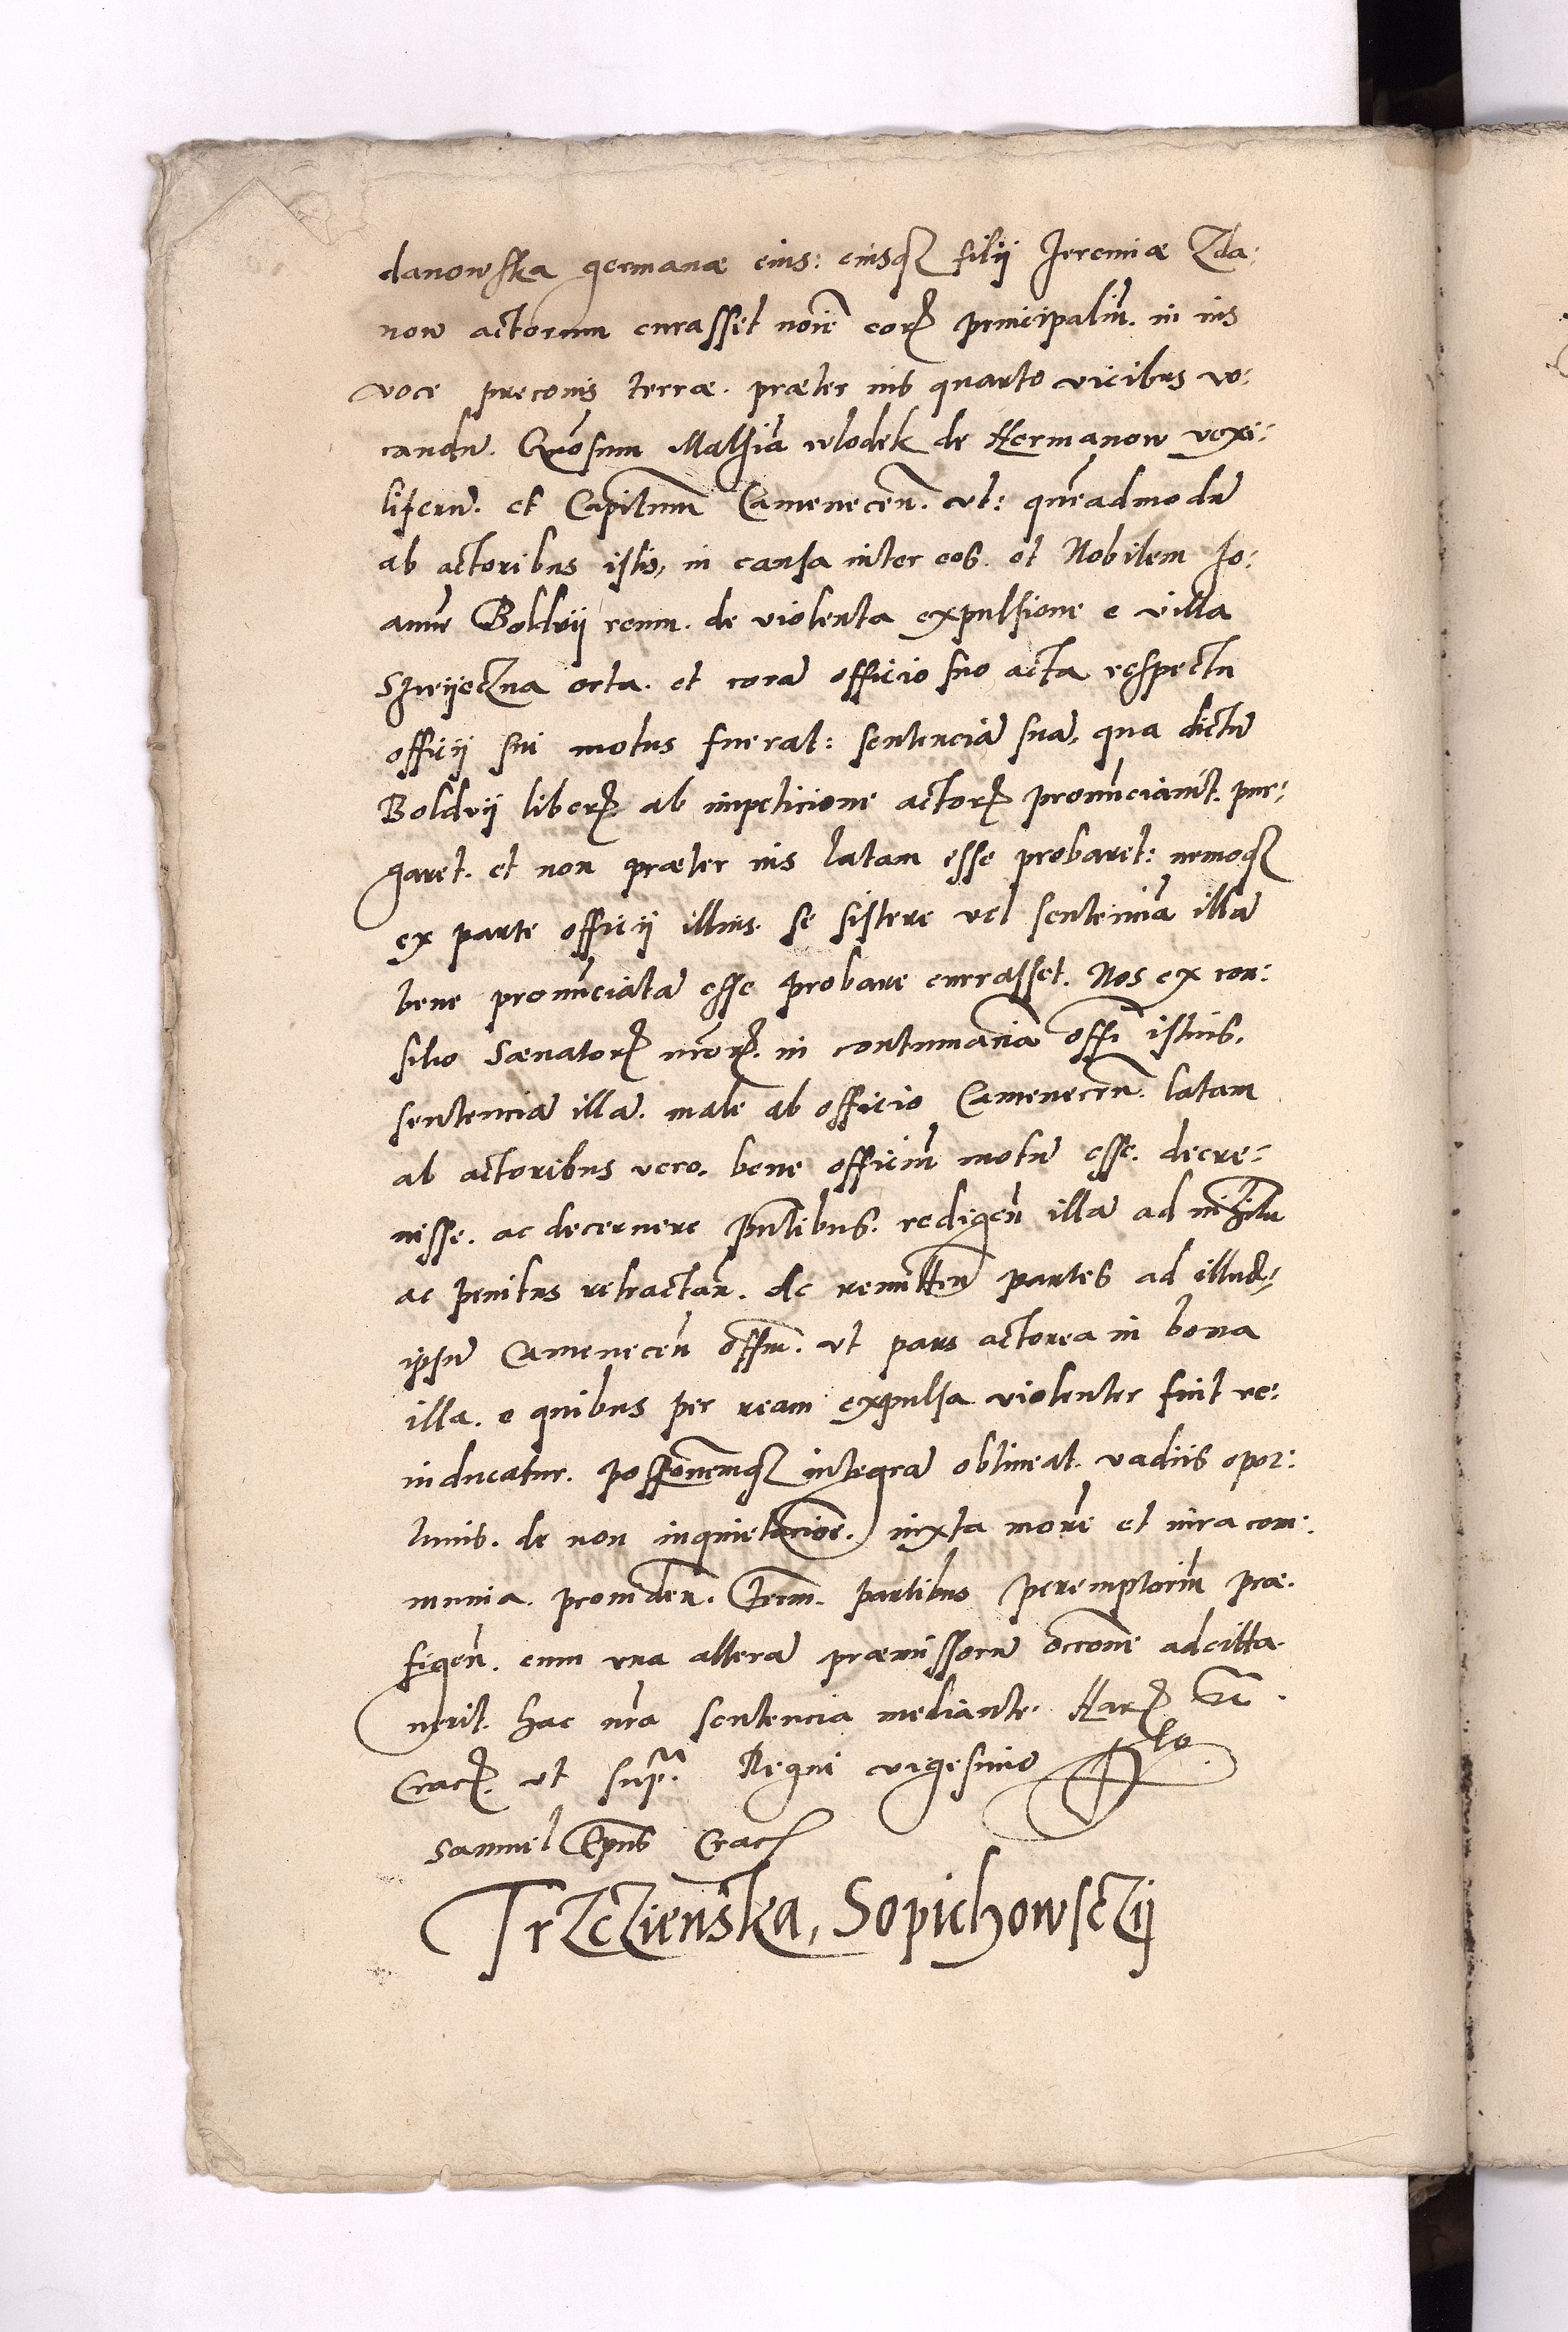 danowska germanæ eius: eiusq₃ filij Jeremiæ Zda:
now actorum curasset noīe eoꝝ principaliū. in ius
voce preconis terræ. præter ius quarto vicibus vo:
candū. Gñosum Mathiā wlodek de Hermanow vexi:
liferū. et Capitneum Camenecen̄. ut: quēadmodū
ab actoribus istis, in causa inter eos. et Nobilem Jo:
annē Boldrij reum. de violenta expulsione e villa
orta. et corā officio suo acta respectu
officij sui motus fuerat: sentenciā suā, qua dictū
Boldrij liberꝝ ab impeticione actorꝝ pronūciauit. pur:
garet. et non præter ius latam esse probaret: nemoq₃
ex parte officij illius. se sistere vel sentenciā illā
bene pronūciatā esse probare currasset. Nos ex con:
silio Sænatorꝝ nr̄orꝝ. in contumaciā offi istius.
sentenciā illā. male ab officio Camenecen̄. latam
ab actoribus vero. bene officiū motū esse. decre:
uisse. ac decernere pn̄tibus. redigen̄ illā ad nihilū
ac penitus retractan̄. Ac remitten̄ partes ad illud:
ipsū Camenecen̄ offm̄. ut pars actorea in bona
illa. e quibus per ream expulsa violenter fuit re:
inducatur. possōnemq₃ integrā obtineat. vadiis opor:
tunis. de non inquietacioē. iuxta morē et iura com:
munia. prouiden̄. Term̄. partibus peremptoriū præ.
figen̄. cum vna alterā præmissorū occōne adcitta
uerit. hac nr̄a sentencia mediante. Harꝝ
Cracꝝ. ut supª. Regni vigesimo
Samuel Ep̄us Crac̄
TrzcziensKa, Sopichowsczij